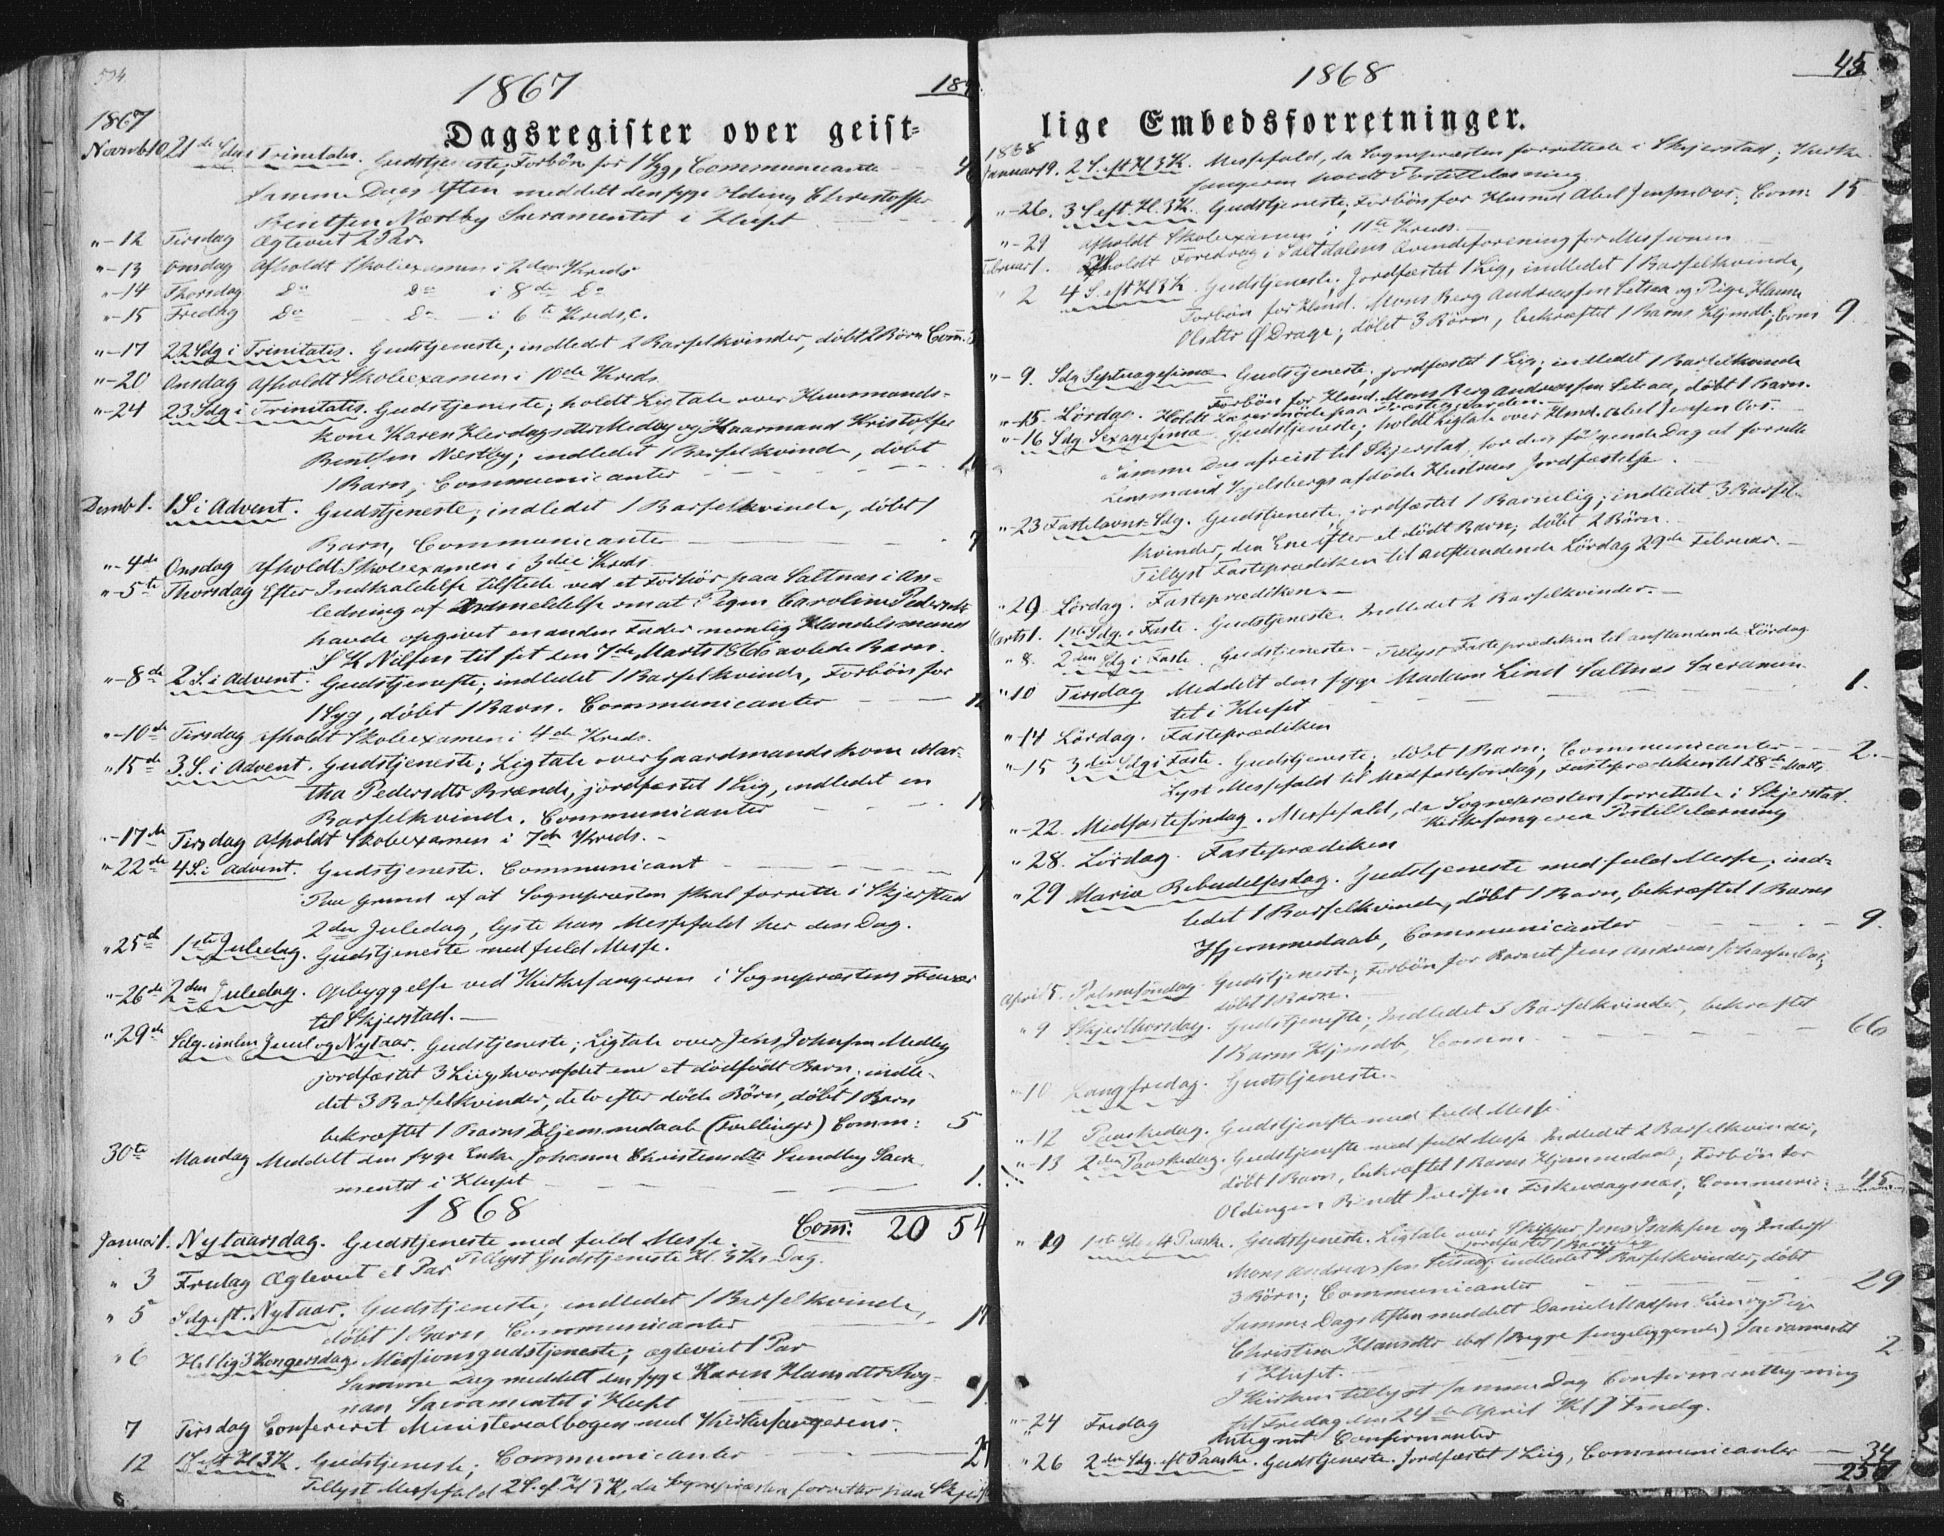 504
1867
184
Dagsregister over geist=
1867
Novemb 10 21de Sdag i Trinitatis. Gudstjeneste, Forbøn for 1 Syg, Communicante
Samme Dags Aften meddelt den syge Olding Christopher
Bentsen Næstby Sacramentet i Huset
"-12 Tirsdag Ægteviet 2 Par.
"-13 Onsdag Afholdt Skoleexamen i 2den Kreds
"-14 Thorsdag Do Do i 8de Do
"-15 Fredag Do Do i 6te Kreds.
"-17 22 Sdg i Trinitatis. Gudstjeneste; indledet 2 Barselkvinder, døbt 2 Børn Com:
"-20 Onsdag Afholdt Skoleexamen i 10de Kreds
"-24 23 Sdg i Trinitatis. Gudstjeneste; holdt Ligtale over Huusmands-
kone Karen Hansdatter Medby og Kaarmand Kristoffer
Bentsen Næstby; indledet 1 Barselkvinde, døbt
1 Barn; Communicanter
Decmb 1. 1 S. i Advent. Gudstjeneste; indledet 1 Barselkvinde, døbt 1
Barn, Communicanter 7
"-4de Onsdag Afholdt Skoleexamen i 3die Kreds
"-5te Thorsdag Efter Indkaldelse tilstede ved et Forhør paa Saltnæs i An-
ledning af Anmeldelse om at Pigen Caroline Pedersdtr
havde opgivet en anden Fader nemlig Handelsmand
S K Nilsen til sit den 7de Marts 1866 avlede Barn.
"-8de 2 S. i Advent. Gudstjeneste; indledet 1 Barselkvinde, Forbøn for
1 Syg, døbt 1 Barn. Communicanter
"-10de Tirsdag Afholdt Skoleexamen i 4de Kreds.
"15de 3. S. i Advent. Gudstjeneste; Ligtale over Gaardmandskone Mar-
tha Pedersdtr Brænde, jordfæstet 1 Liig, indledet en
Barselkvinde. Communicanter
"-17de Tirsdag Afholdt Skoleexamen i 7de Kreds.
"-22de 4 S. i Advent. Gudstjeneste. Communicant
Paa Grund af at Sognepræsten skal forrette i Skjerstad
2den Juledag, lyste han Messefald her den Dag.
"25de 1ste Juledag. Gudstjeneste med fuld Messe.
"-26de 2den Juledag. Opbyggelse ved Kirkesangeren i Sognepræstens Fravær
til Skjerstad.
"29de Sdg. imlm Juul og Nytaar. Gudstjeneste; Ligtale over Jens Johnsen Medby
jordfæstet 3 Liig, hvoraf det ene et dødfødt Barn; indle-
det 3 Barselkvinder, de to efter døde Børn, døbt 1 Barn
bekræftet 1 Barns Hjemmedaab (Tvillinger) Comm: 5
30te Mandag Meddelt den syge Enke Johanna Christensdtr Sundby Sacra-
mentet i Huset 1.
1868 Com: 20 54
Januar 1. Nytaarsdag. Gudstjeneste med fuld Messe.
Tillyst Gudstjeneste Hl. 3 K. Dag.
" 3 Fredag Ægteviet et Par
" 5 Sdg eft. Nytaar. Gudstjeneste; indledet 1 Barselkvinde,
døbt 1 Barn Communicanter
" 6 Hellig 3 Kongersdag. Missionsgudstjeneste; ægteviet 1 Par
Samme Dag meddelt den syge Karen Hansdtr Rog-
nan Sacramentet i Huset 1.
7 Tirsdag Confereret Ministerialbogen med Kirkesangerens.
12 1 S. eft Hl 3 K. Gudstjeneste; Communicanter
Tillyst Messefald 2 S. ef. Hl 3 K, da Sognepræsten forretter paa Skjerst
1868
45
lige Embedsforretninger.
1868
Januar 19. 2 S. eft Hl 3 K. Messefald, da Sognepræsten forrettede i Skjerstad; Kirke-
sangeren holdt Postillelæsning
"-26. 3 S eft. Hl. 3 K. Gudstjeneste; Forbøn for Husmd Abel Jensen Os; Com: 15
"-29 Afholdt Skoleexamen i 11te Kreds.
Februar 1. Afholdt Foredrag i Saltdalens Qvindeforening for Missionen
" 2 4 S. eft Hl 3 K. Gudstjeneste, Jordfæstet 1 Lig, indledet 1 Barselkvinde,
Forbøn for Hmd. Mons Berg Andreassen Setsaa og Pige Hanna
Olsdtr Drage; døbt 3 Børn, bekræftet 1 Barns Hjmdb; Com 9.
"- 9. Sdg Septuagesima Gudstjeneste, jordfæstet 1 Lig; indledet 1 Barselkvinde
Forbøn for Hmd. Mons Berg Andreassen Setsaa, døbt 1 Barn.
"-15. Lørdag. Holdt Lærermøde paa Præstegaarden.
"-16 Sdg Sexagesima Gudstjeneste; holdt Ligtale over Hmd. Abel Jensen Os.
Samme Dag afreist til Skjerstad, for den følgende Dag at forrette
Lensmand Fjelsbergs afdøde Hustrues Jordfæstelse.
"-23 Fastelavns-Sdg. Gudstjeneste, jordfæstet 1 Barnelig; indledet 3 Barsel-
kvinder, den Ene efter et dødt Barn; døbt 2 Børn.
Tillyst Fasteprædiken til anstundende Lørdag 29de Februar.
"29 Lørdag. Fasteprædiken.
Marts 1. 1ste Sdg. i Faste. Gudstjeneste. Indledet 2 Barselkvinder.
" 8. 2den Sdg i Faste. Gudstjeneste. Tillyst Fasteprædiken til anstundende Lørdag
"10 Tirsdag Meddelt den syge Madam Lind Saltnes Sacramen-
tet i Huset 1.
"-14 Lørdag. Fasteprædiken
"-15 3die Sdg i Faste. Gudstjeneste; døbt 1 Barn; Communicanter 2.
Lyst Messefald til Midfastesøndag, Fasteprædiken til 28de Marts
"-22. Midfastesøndag. Messefald, da Sognepræsten forrettede i Skjerstad.
Kirkesangeren Postillelæsning
"28. Lørdag. Fasteprædiken
"29 Mariæ Bebudelsesdag. Gudstjeneste med fuld Messe, ind-
ledet 1 Barselkvinde, døbt 1 Barn, bekræftet 1 Barns
Hjemmedaab, Communicanter 9.
April 5. Palmesøndag. Gudstjeneste; Forbøn for Barnet Jens Andreas Johansen Os;
døbt 1 Barn.
" 9 Skjærthorsdag. Gudstjeneste; Indledet 3 Barselkvinder, bekræftet
1 Barns Hjmdb, Comm. 66
"-10 Langfredag. Gudstjeneste.
"-12 Paaskedag. Gudstjeneste med fuld Messe.
"-13 2den Paaskedag. Gudstjeneste med fuld Messe Indledet 2 Barselkvinder,
døbt 1 Barn, bekræftet 1 Barns Hjemmedaab; Forbøn for
Oldingen Berndt Iversen Fiskevaagnæs; Communic: 45.
" 19 1ste S. eft Paaske. Gudstjeneste. Ligtale over Skipper Jens Isaksen og Inderst
jordfæstet 1 Barnelig
Mons Andreassen Setsaa; indledet 4 Barselkvinder, døbt
3 Børn; Communicanter 29
Samme Dags Aften meddelt Daniel Madsen og Pige
Christina Hansdtr ibd (begge sengeliggende) Sacramentet
i Huset. 2
I Kirken tillyst samme Dag Confirmanttegning
til Fredag den 24de April
"-24 Fredag Antegnet Confirmanter
"26 2den Sdg. eft Paaske. Gudstjeneste. Jordfæstet 1 Liig, Communicanter 34